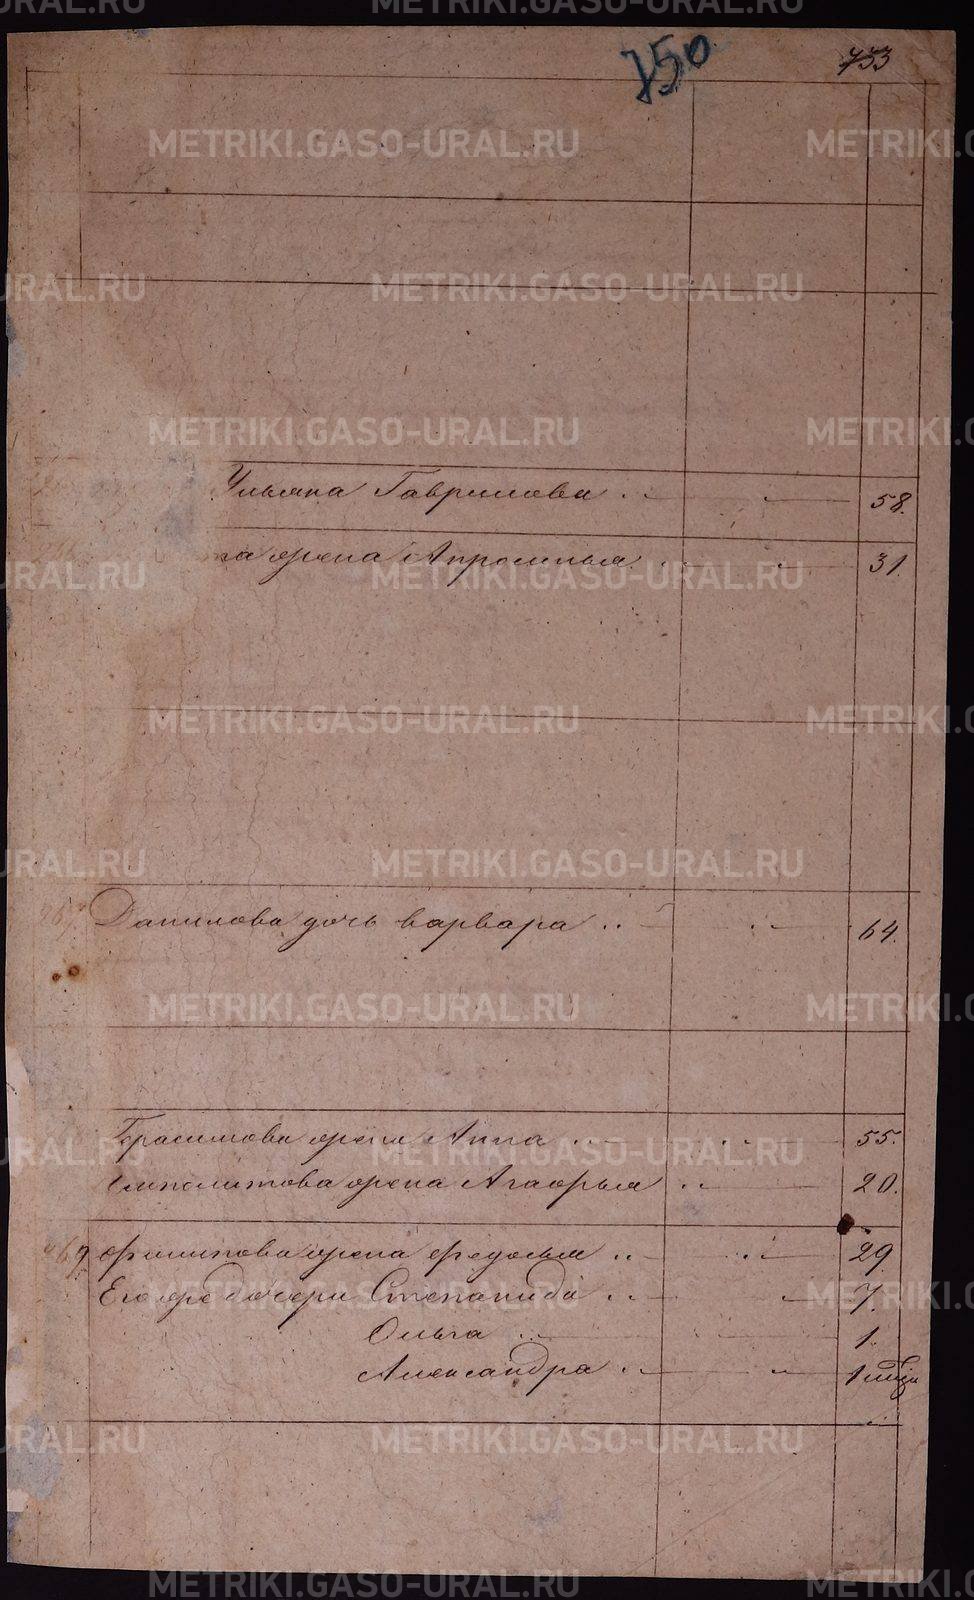 750 753
METRIKI.GASO-URAL.RU
Ульяна Гаврилова 58.
жена Апросинья 31.
Данилова дочь варвара 64.
Герасимова жена Анна 55.
Ипполитова жена Агафья 20.
Филипова жена федосья 29
Его же дочери Степанида 7.
Ольга 1.
Александра 1